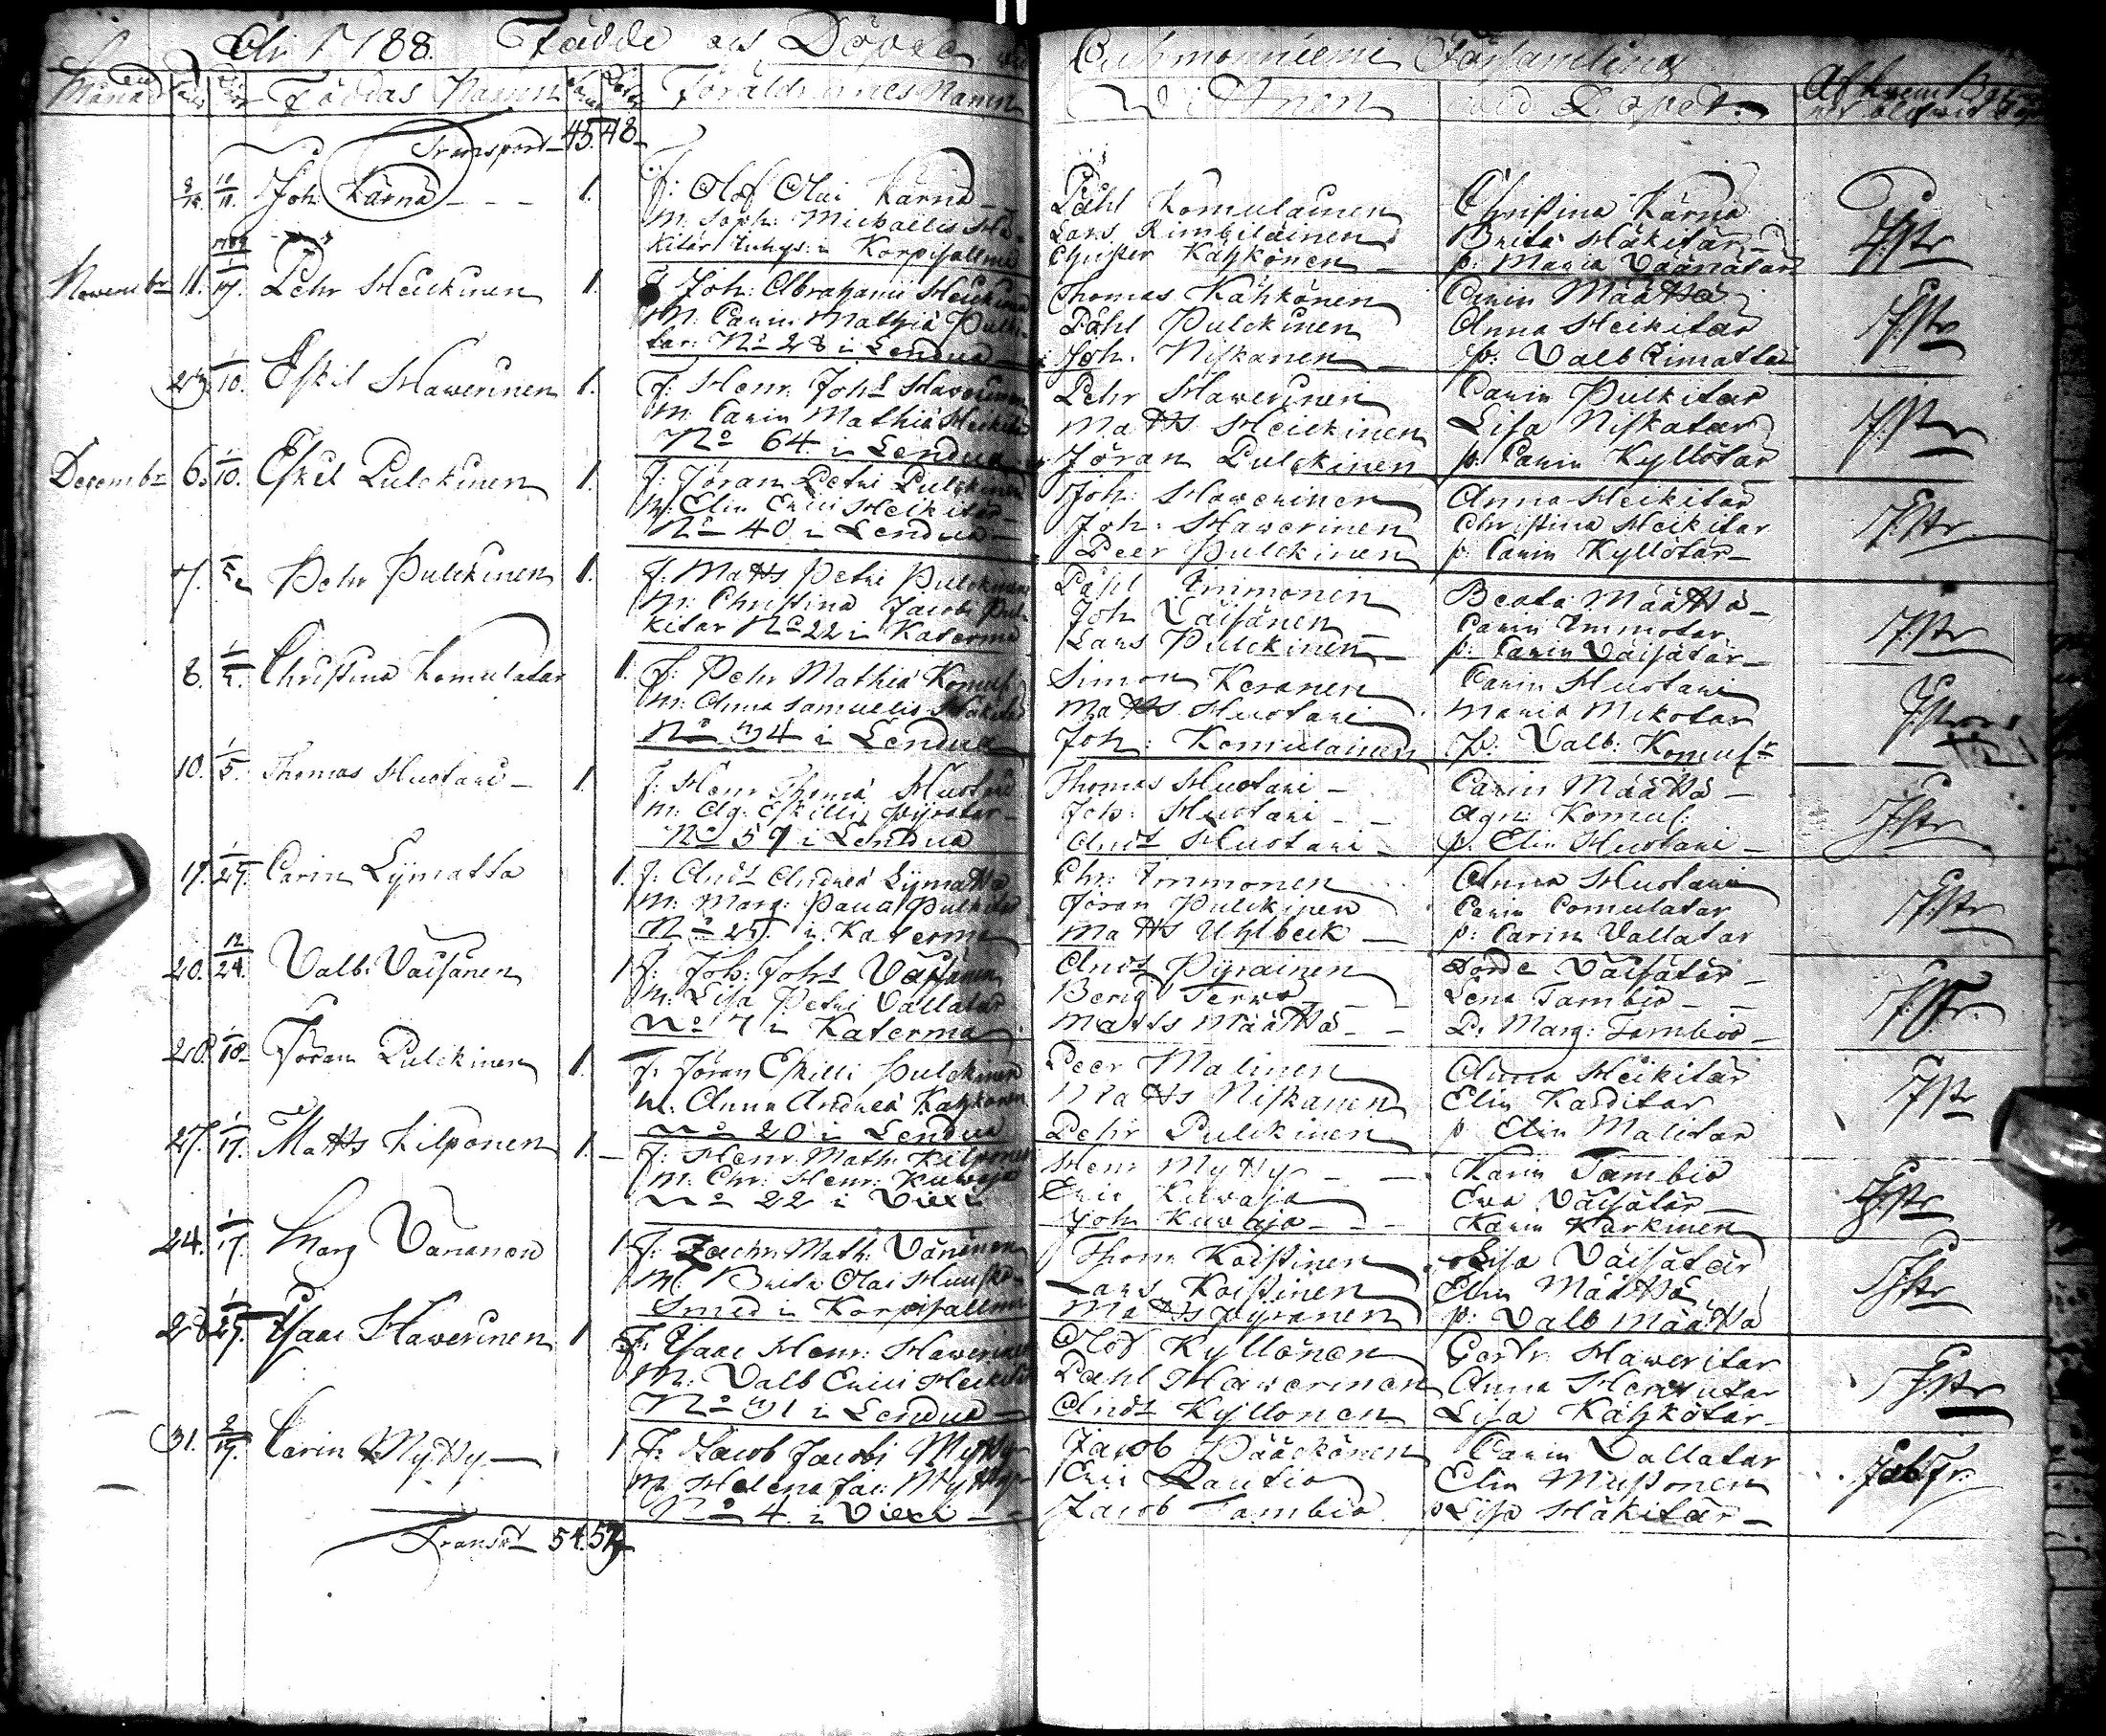 Ar 1788. Födde och Döpte
Cuhmonniemi Församling
Månad
Föddas Namn
Föräldrarnes Namn
Wittnen
wid Dopet.
Transport 45. 48
8/12. 11/11. Joh: Kärnä 1.
f: Olof Olai Kärnä
M: Soph: Michaelis Hä-
kitär Inhys: i Korpisallmi
Påhl Komulainen
Lars Rimbiläinen
Christer Kähkönen
Christina Kärnä
Brita Häkitär
p: Maria Väänätar
Novembr 11. 1/17. Pehr Heickinen 1.
f. Joh: Abrahami Heickinen
M: Carin Mathiæ Pulki-
tar: No 28 i Lendua
Thomas Kähkönen
Påhl Pulckinen
Joh. Niskanen
Carin Määttä
Anna Heikitar
p: Valb Rimatta
29. 1/10. Eskil Hawerinen 1.
f: Henr: Johs Hawerinen
M: Carin Mathiæ Heikitar
No 64. i Lendua
Pehr Hawerinen
Matts Heickinen
Jöran Pulckinen
Carin Pulkitar
Lisa Niskatar
p: Carin Kyllötar
Decembr 6. 1/10. Eskil Pulckinen 1.
f: Jöran Petri Pulckinen
M: Elin Erici Heikitar
No 40 i Lendua
Joh: Hawerinen
Joh: Hawerinen
Peer Pulckinen
Anna Heikitar
Christina Heikitar
p. Carin Kyllötar
7. Pehr Pulckinen 1.
f: Matts Petri Pulckinen
M: Christina Jacobi Pul-
kitar No 22 i Katerma
Påhl Immonen
Joh Väisänen
Lars Pulckinen
Beata Määttä
Carin Immotar
p: Carin Väisätar
8. 1/2. Christina Komulatar 1.
f: Pehr Mathiæ Komul:
M: Anna Samuelis Häkitar
No 34 i Lendua
Simon Keranen
Matts Huotari
Joh: Komulainen
Carin Huotari
Maria Mikotar
p: Valb: Komul:r
10. 1/5. Thomas Huotari 1.
f: Henr Thomæ Huotari
M: Ag: Eskilli Pyrötar
No 59 i Lendua
Thomas Huotari
Joh: Huotari
Ands Huotari
Carin Määttä
Agn: Komul:
p. Elin Huotari
17. 1/27. Carin Lymatta 1.
f: Ands Andreæ Lymatta
M: Marg: Pauli Pulkitar
No 29. i Katerma
Chr: Immonen
Jöran Pulckinen
Matts Uhlbeck
Anna Huotari
Carin Comulatar
p: Carin Vallatar
20. 12/24. Valb: Väisänen 1
f: Joh: Johs Väisänen
M: Lisa Petri Vallatar
No 7 i Katerma
Ands Pyrainen
Beng Terwo
Matts Määttä
Dorde Väisätar
Lena Tambio
p. Marg: Tambio
20. 1/18. Jöran Pulckinen 1.
f: Jöran Eskilli Pulckinen
M: Anna Andreæ Kahkonen
No 20 i Lendua
Peer Malinen
Matts Niskanen
Pehr Pulckinen
Anna Heikitar
Elin Karditar
p Elin Malitar
27. 1/17. Matts Kilponen 1.
f: Henr: Math: Kilponen
M: Chr: Henr: Kuwaja
No 22 i Viexi
Henr Mytty
Eric Kuwaja
Joh Kuwaja
Karin Tambio
Ewa Väisätär
Karin Karkinen
24. 1/17. Marg Vananen 1
f: Zachr: Math: Vänänen
M: Brita Olai Huusko
Smed i Korpisallmi
Thom Koistinen
Lars Koistinen
Matts Pyränen
Lisa Väisätär
Elin Määttä
p: Valb Määttä
28 1/27. Isaac Hawerinen 1
f: Isaac Henr: Hawerinen
M: Valb Erici Heikitar
No 31 i Lendua
Olof Kyllönen
Påhl Hawerinen
Ands Kyllonen
Gertr: Haweritar
Anna Hawritar
Lisa Kähkötar
31. 2/19. Carin Mytty 1
f: Jacob Jacobi Mytty
M: Helena Jac: Mytty
No 4. i Viexi
Jacob Pääckönen
Eric Rautio
Jacob Tambio
Carin Vallatar
Elin Mustonen
p Lisa Häkitär
Transpt 54. 57